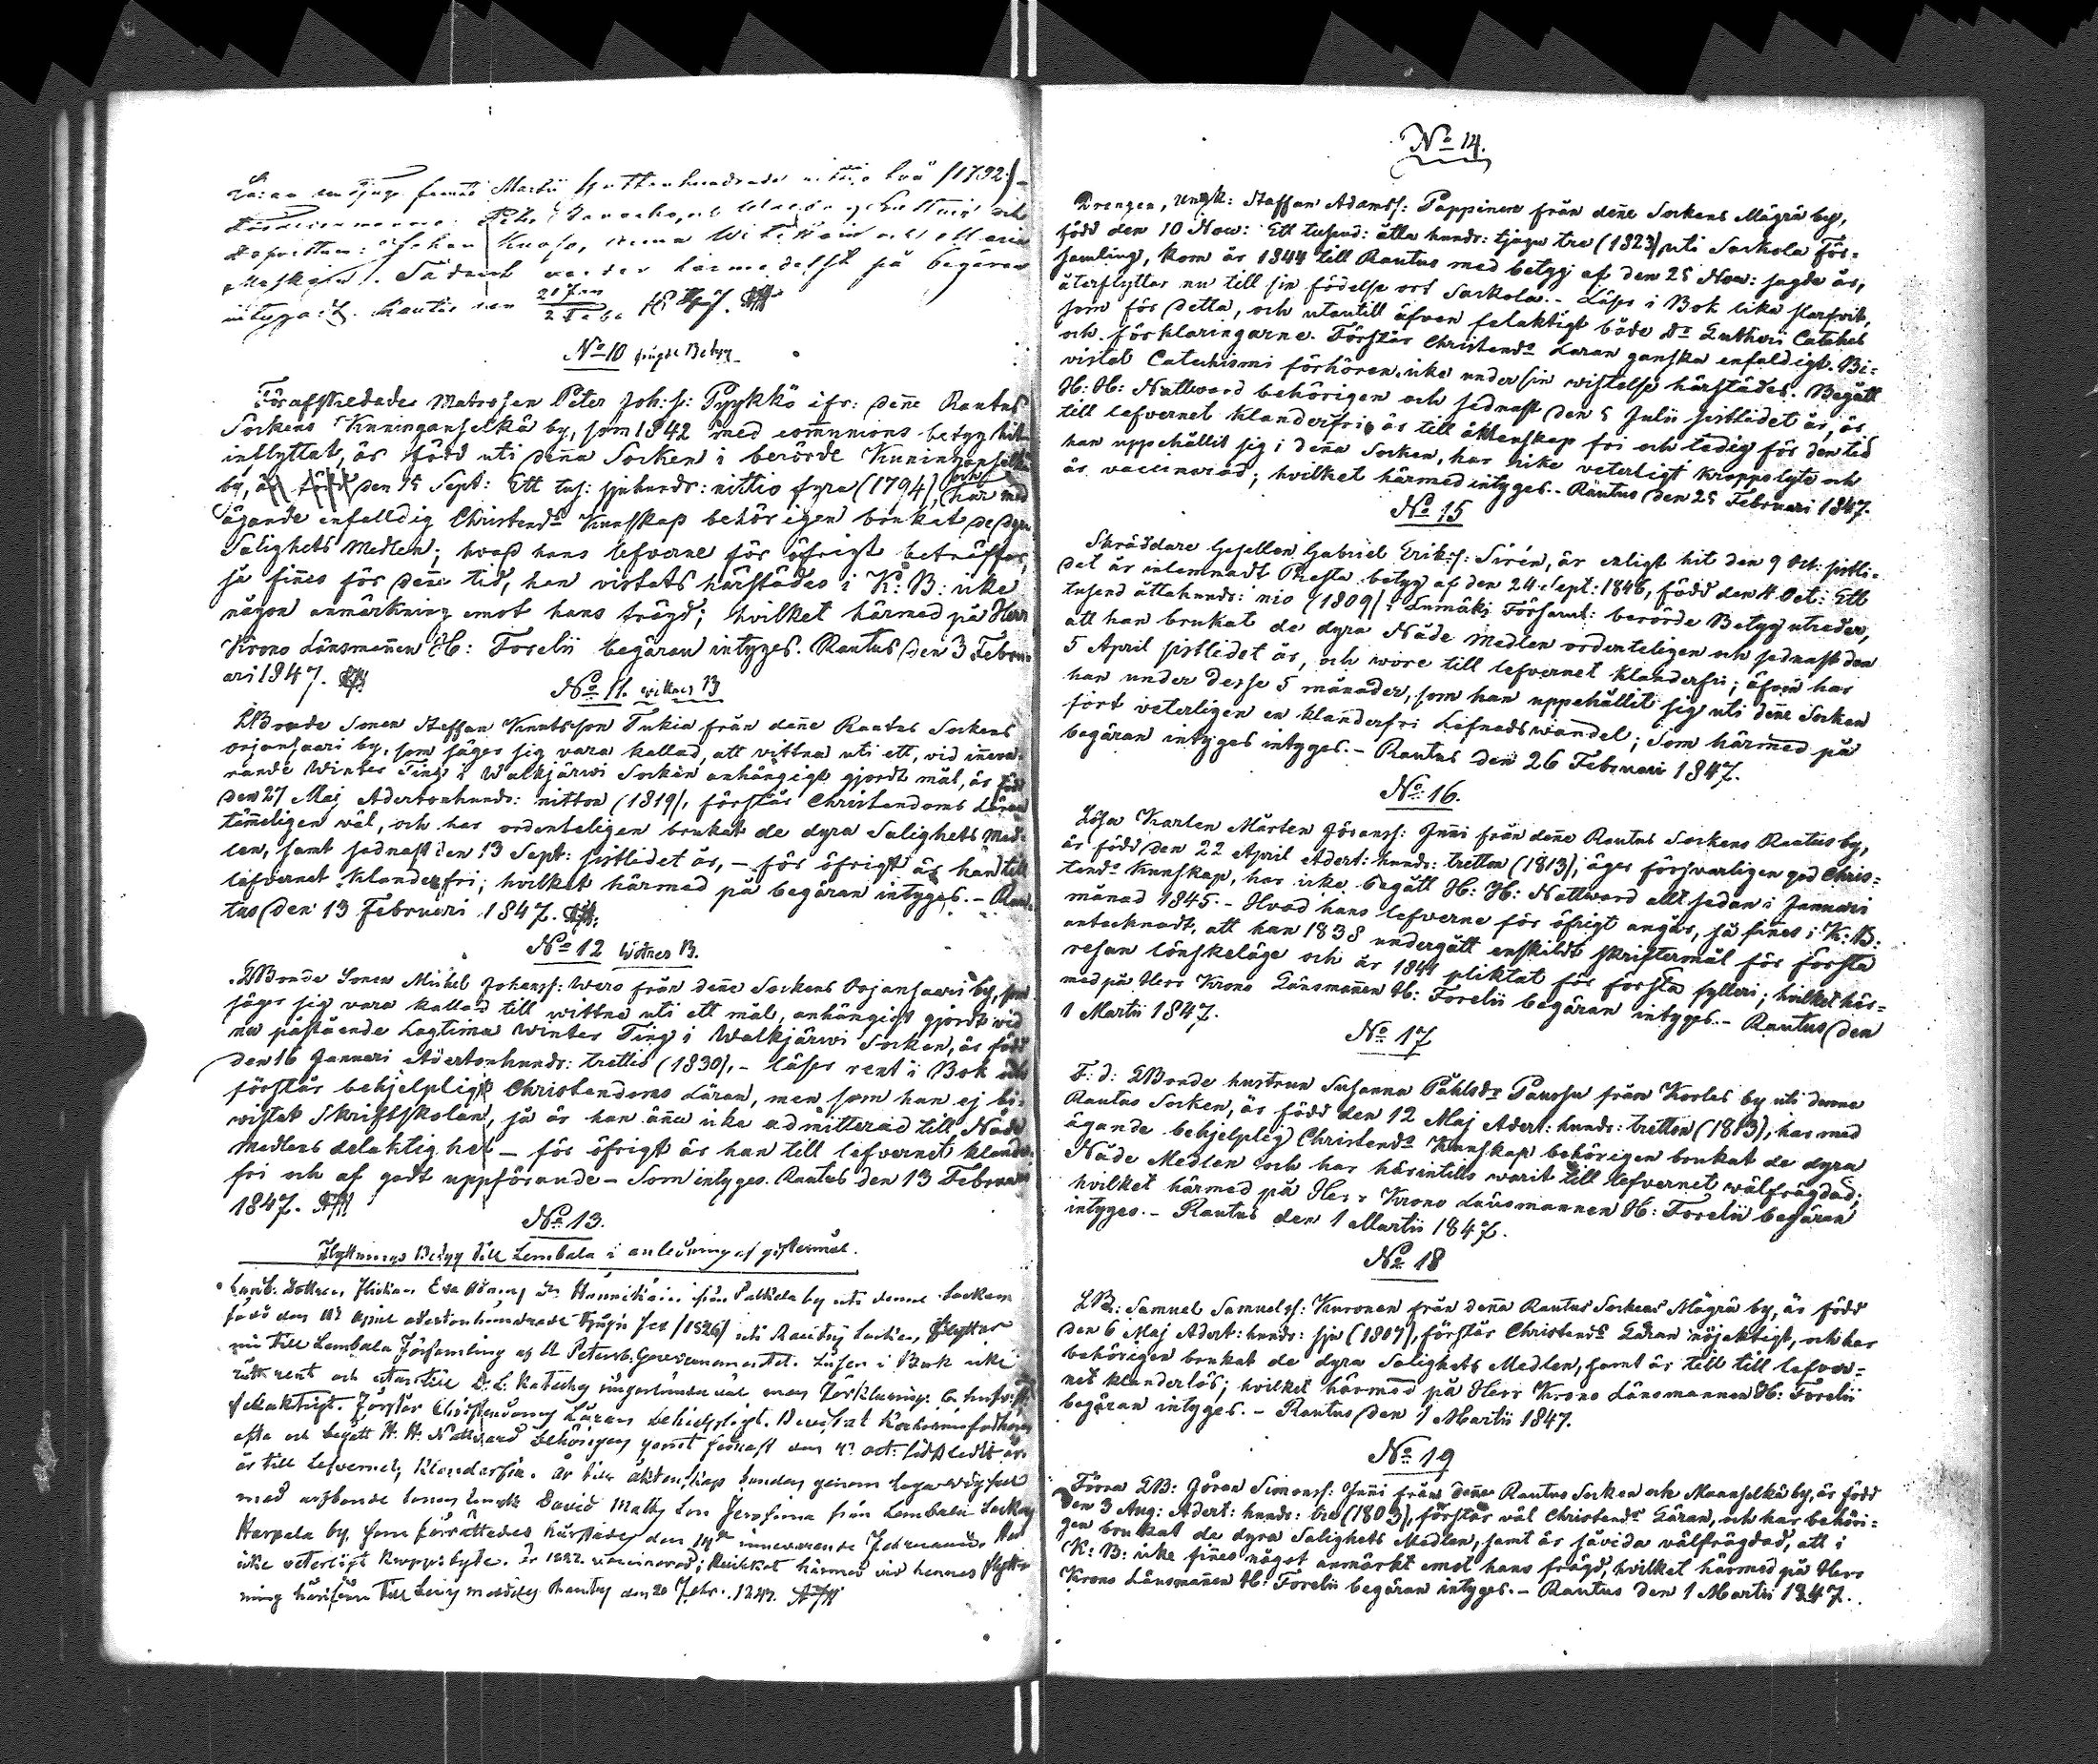 Martii Sjuttonhundrade nittio två (1792)
Johan
Sådant varder härmedelst på begäran
intygadt. Rautus den
No 10 frägde Betyg
Förafskedade Matrosen Peter Joh:s: Pyykkö ifr: denne Rautus
Sockens Kuninganselkä by, som 1842 med communions betyg hit
inflyttat, är född uti denna Socken i berörde Kuninganselkä
by, den 15 Sept: Ett tus: sjuhundr: nittio fyra (1794), och har med
ägande enfalldig Christends Kunskap behörigen brukat de dyra
Salighets Medlen; hvad hans lefverne för öfrigt beträffar,
så finnes för denne tid, han vistats härstädes i K: B: icke
någon anmärkning emot hans frägd; hvilket härmed på Herr
Krono Länsmannen H: Forelii begäran intyges. Rautus den 3 Febru-
ari 1847.
No 11. wittnes B
LBonde Sonen Staffan Knutsson Tukia från denne Rautus Sockens
Orjansaari by, som säger sig vara kallad, att vittna uti ett, vid inneva-
rande Winter Ting i Walkjärwi Socken anhängigt gjordt mål, är född
den 27 Maj Adertonhundr: nitton (1819), förstår Christendoms Läran
temmeligen wäl, och har ordenteligen brukat de dyra Salighets Med-
len, samt sednast den 13 Sept: sistlidet år, – för öfrigt är han till
lefvernet klanderfri; hvilket härmed på begäran intyges. – Rau-
tus den 13 Februari 1847.
No 12 Wittnes B.
LBonde Sonen Michel Johanss: Wero från denne Sockens Orjansaari by, som
säger sig vara kallad till wittne uti ett mål, anhängigt gjordt wid
nu påstående Lagtima Winter Ting i Walkjärwi Socken, är född
den 16 Januari Adertonhundr: trettio (1830), – läser rent i Bok och
förstår behjelpligt Christendoms Läran, men som han ej bi-
vistat Skriftskolan, så är han ännu icke admitterad till Nåde
Medlens delaktighet – för öfrigt är han till lefvernet klander-
fri och af godt uppförande – Som intyges. Rautus den 13 Februari
1847.
No 13.
Flyttnings Betyg till Lembala i anledning af giftermål.
Landb. Dottren, Flickan Eva från Palkeala by uti denne Socken
född den April adertonhundrade tjugu sex (1826) uti Rautus Socken, flyttar
nu till Lembala Församling af St Petersb. Gouvernementet. Läser i Bok icke
rätt rent och utantill D. L. Kateches någorlunda väl men Förklaring.
felaktigt. Förstår Christendoms Läran behjelpligt. Bevistat
ofta och begått H. H. Nattvard behörigen samt sednast den Oct: sistledit år.
är till lefvernet klanderfri. Är till äktenskap bunden genom laga vigsel
med David Matts Son från Lembala Socken
Harpala by, som förrättades härstädes den 14de innevarande Februarii. Har
icke veterligt kroppslyte. Är vaccinerad; hvilket härmed vid hennes flytt-
ning härifrån till Lembala meddelas. Rautus den 20 Febr. 1847.
No 14.
Drengen, Ungk: Staffan Adamss: Pappinen från denne Sockens Mägrä by,
född den 10 Now: Ett tusend: åtta hundr: tjugu tre (1823) uti Sackola För-
samling, kom år 1844 till Rautus med betyg af den 25 Now: sagde år,
återflyttar nu till sin födelse ort Sackola. – Läser i Bok lika slarfvit,
som för detta, och utantill äfven felaktigt både Dr Lutheri Cateches
och förklaringarne. Förstår Christends Läran ganska enfaldigt. Bi-
vistat Catechismi förhören icke under sin wistelse härstädes. Begått
H: H: Nattward behörigen och sednast den 5 Julii sistlidet år, är
till lefvernet klanderfri är till äktenskap fri och ledig för den tid
han uppehållit sig i denna Socken, har icke veterligt kroppslyte och
är vaccinerad; hvilket härmed intyges. – Rautus den 25 Februari 1847.
No 15
Skräddare Gesellen Gabriel Eriks: Sirén, är enligt hit den 9 Oct: sistli-
det år inlemnadt Presta betyg af den 24 Sept: 1846, född den 4 Oct: Ett
tusend åttahundr: nio (1809) i Lumäki Församl: berörde Betyg utreder,
att han brukat de dyra Nåde Medlen ordenteligen och sednast den
5 April sistlidet år, och wore till lefvernet klanderfri; äfven har
han under desse 5 månader, som han uppehållit sig uti denne Socken
fört veterligen en klanderfri Lefnadswandel; Som härmed på
begäran intyges intyges. – Rautus den 26 Februari 1847.
No: 16.
Lösa Karlen Mårten Jöranss: Inni från denne Rautus Sockens Rautus by,
är född den 22 April Adert: hundr: tretton (1813), äger försvarligen god Chris-
tends Kunskap, har icke begått H: H: Nattward allt sedan i Januari
månad 1845. – Hvad hans lefverne för öfrigt angår, så finnes i K: B:
antecknadt, att han 1838 undergått enskildt skriftermål för första
resan lönskeläge och år 1844 pliktat för första fylleri; hvilket här-
med på Herr Krono Länsmannen H: Forelii begäran intyges. – Rautus den
1 Martii 1847.
No 17
F: d: LBonde hustrun Susanna Påhlsdr Paussu från Korles by uti denne
Rautus Socken, är född den 12 Maj Adert: hundr: tretton (1813), har med
ägande behjelplig Christends Kunskap behörigen brukat de dyra
Nåde Medlen och har härintills warit till lefvernet wälfrägdad;
hvilket härmed på Herr Krono Länsmannen H: Forelii begäran
intyges. – Rautus den 1 Martii 1847.
No 18
LB: Samuel Samuelss: Kuronen från denna Rautus Sockens Mägrä by, är född
den 6 Maj Adert: hundr: sju (1807), förstår Christends Läran nöjaktigt, och har
behörigen brukat de dyra Salighets Medlen, samt är till till lefver-
net klanderlös; hvilket härmed på Herr Krono Länsmannen H: Forelii
begäran intyges. – Rautus den 1 Martii 1847.
No 19
Förra LB: Jöran Simonss: Inni från denne Rautus Socken och Maanselkä by, är född
den 3 Aug: Adert: hundr: tre (1803), förstår väl Christends Läran, och har behöri-
gen brukat de dyra Salighets Medlen, samt är såvida välfrägdad, att i
K: B: icke finnes något anmärkt emot hans frägd, hvilket härmed på Herr
Krono Länsmannen H: Forelii begäran intyges. – Rautus den 1 Martii 1847.